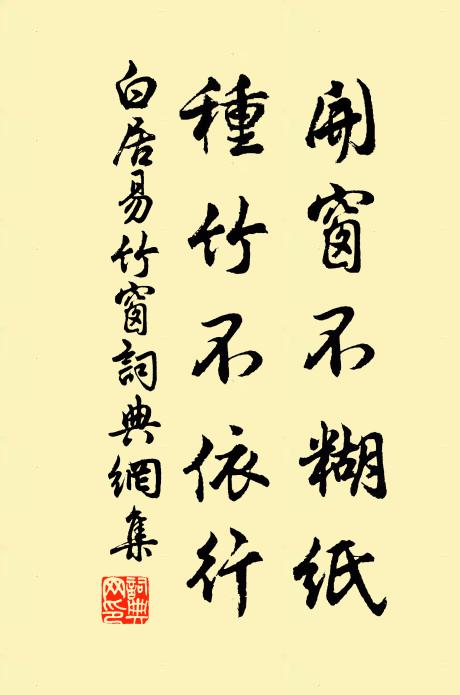 開窗不糊紙
種竹不依行
白居易竹窗詞典網集
詞典網印